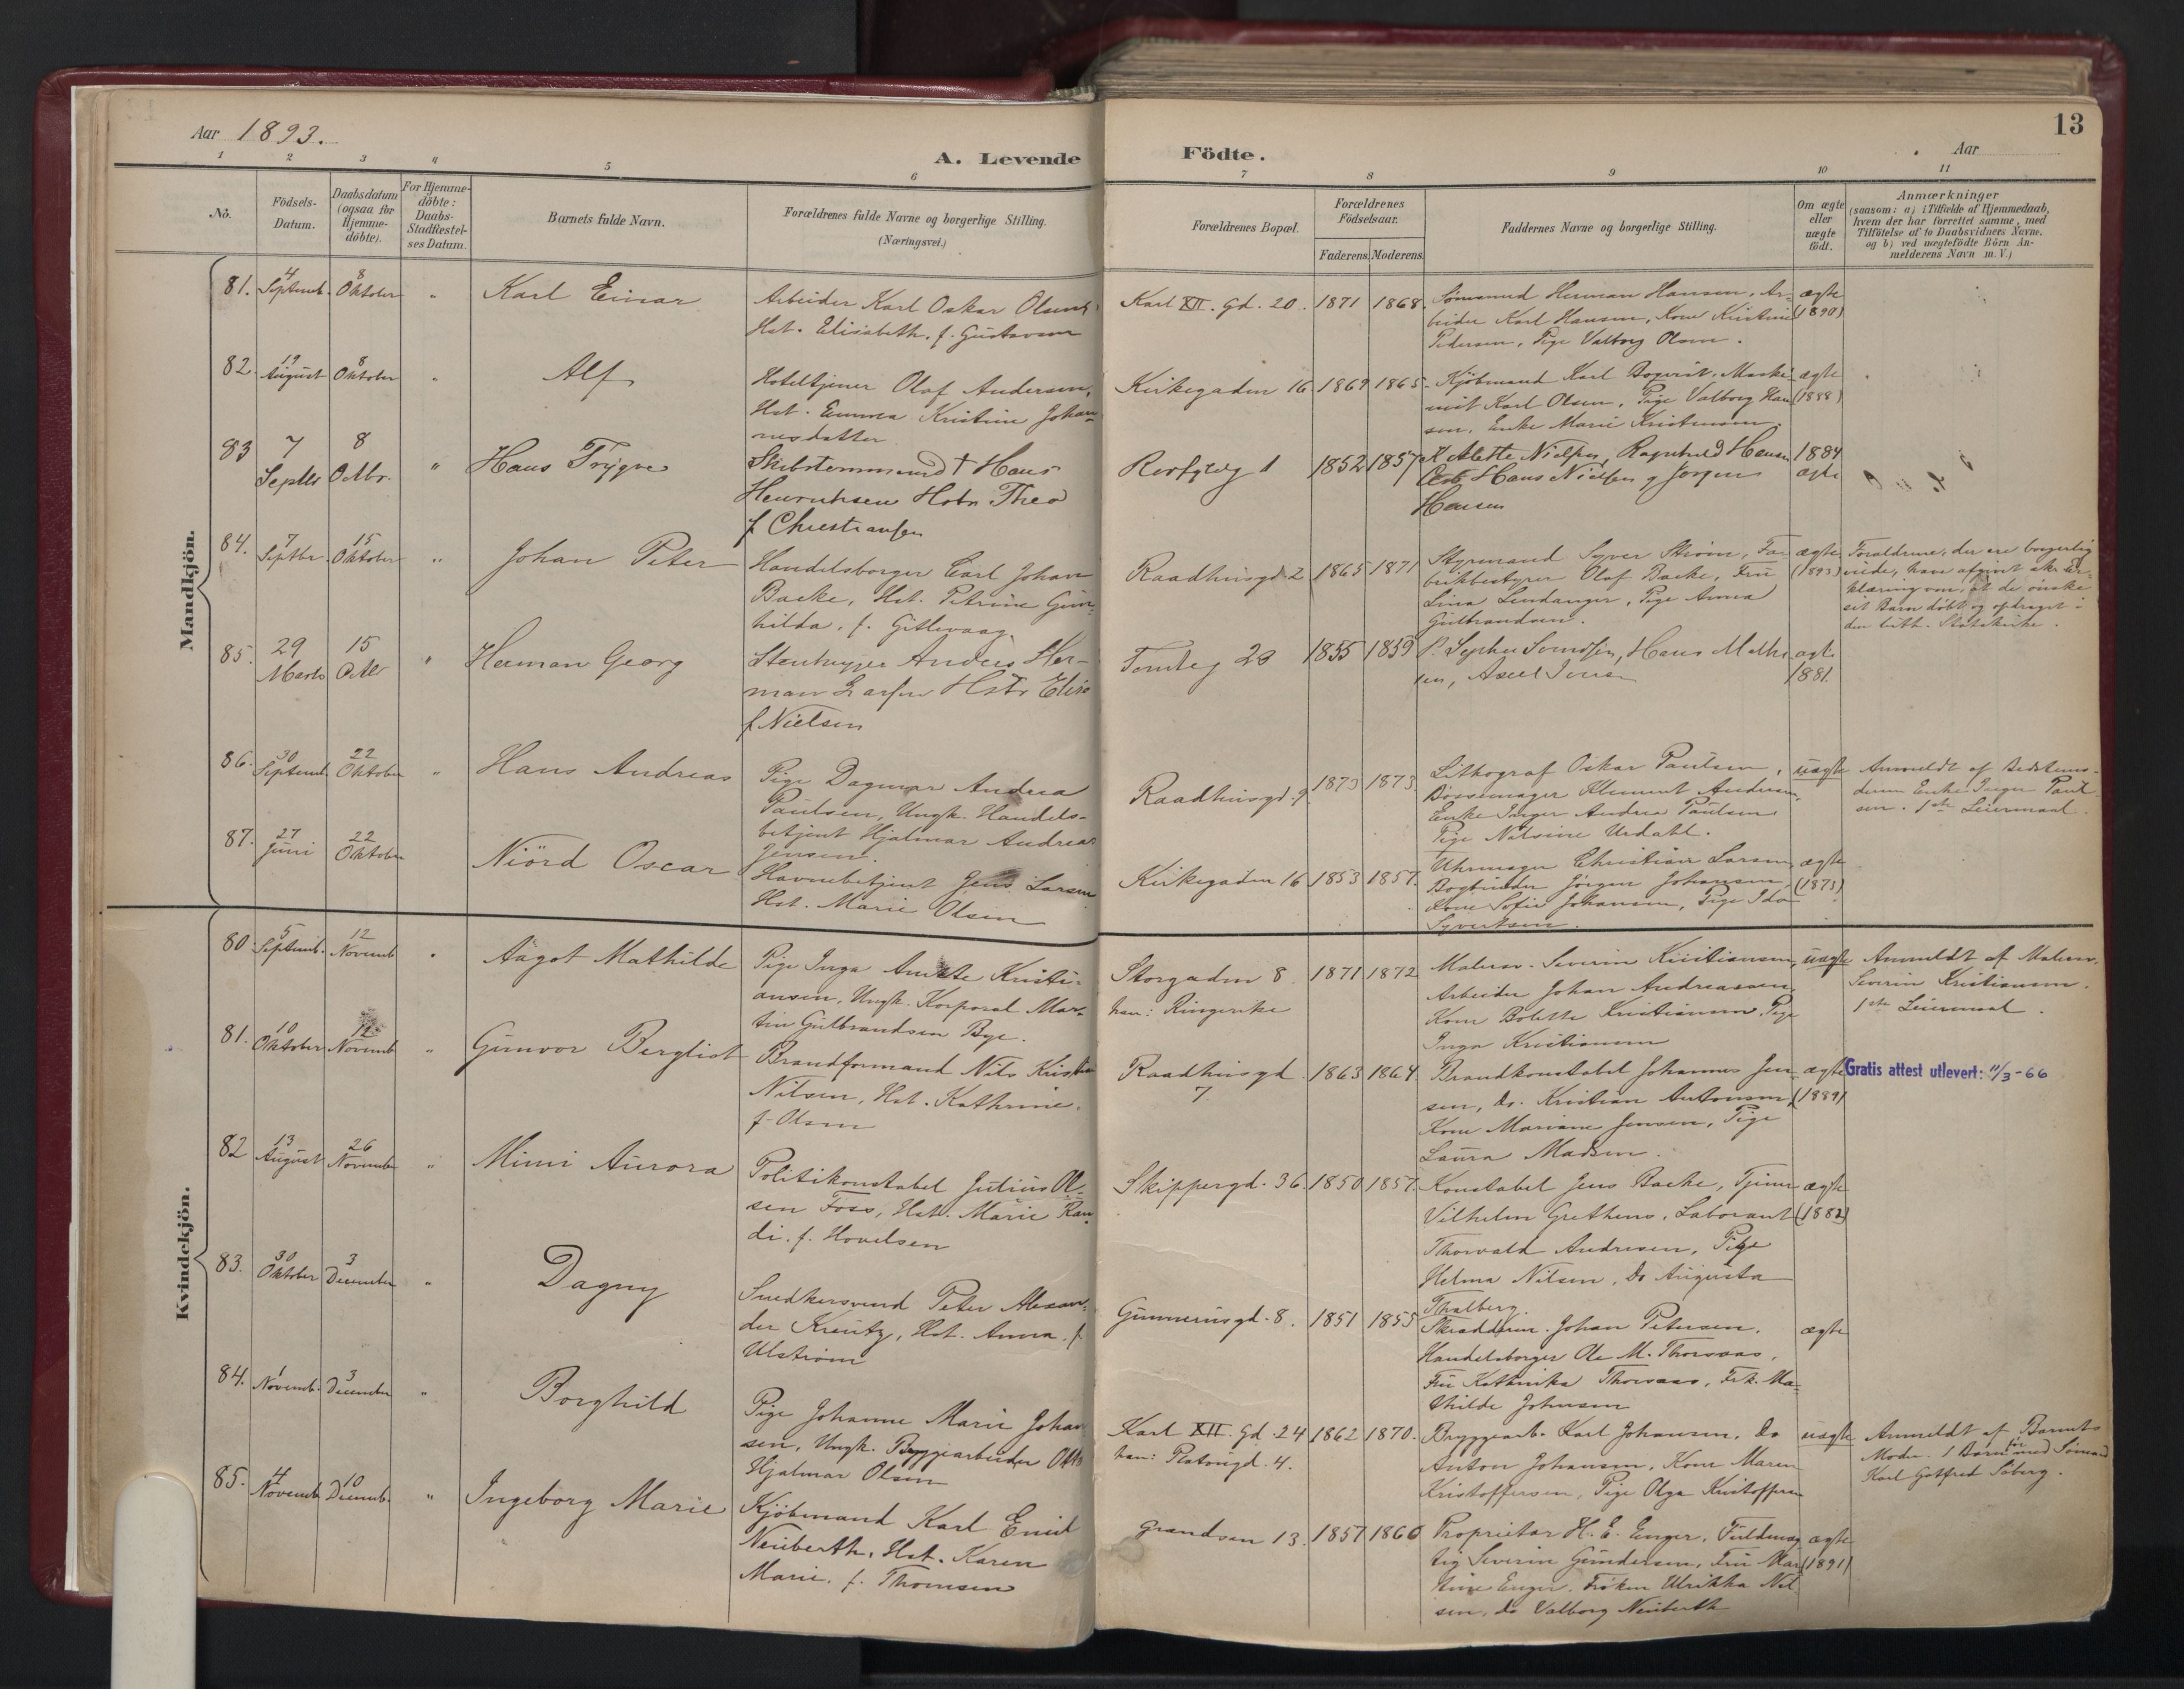 Aar 1893.
A. Levende
1 2 3 4 5 6
Nö.
Födsels-Datum.
Daabsdatum (ogsaa for Hjemme-döbte).
For Hjemme-döbte: Daabs-Stadfæstel-ses Datum.
Barnets fulde Navn.
Forældrenes fulde Navne og borgerlige Stilling.
(Næringsvei.)
Födte.
13
Aar
7 8 9 10 11
Forældrenes Bopæl.
Forældrenes Födselsaar.
Faderens. Moderens.
Faddernes Navne og borgerlige Stilling.
Om ægte eller uægte födt.
Anmærkninger
(saasom: a) i Tilfælde af Hjemmedaab,
hvem der har forrettet samme, med
Tilföielse af to Daabsvidners Navne,
og b) ved uægtefödte Börn An-
melderens Navn m. V.)
Mandkjön.
81. 4 Septemb. 8 Oktober " Karl Einar
Arbeider Karl Oskar Olsen,
Hst. Elisabeth, f. Gustavsen
Karl XII. Gd. 20. 1871 1868.
Sömand Herman Hansen, Ar-
beider Karl Hansen, Kone Kristine
Pedersen, Pige Valborg Olsen.
ægte
(1890)
82. 19 August 8 Oktober " Alf
Hoteltjener Olaf Andersen,
Hst. Emma Kristine Johan-
nesdatter
Kirkegaden 16 1869 1865
Kjöbmand Karl, Maski-
nist Karl Olsen, Pige Valborg Han-
sen, Enke Marie Kristensen.
ægte
(1888)
83 7 Septbr 8 Octbr. " Hans Trygve
Skibstömmermand † Hans
Henrichsen Hstr. Thea
f Christiansen
1 1852 1857
K Alette Nielsen, Ragnhild Hansen
Hans Nielsen g Jörgen
Hansen
1884
ægte
84. 7 Septbr. 15 Oktober " Johan Peter
Handelsborger Carl Johan
Backe, Hst. Petrine Gun-
hilda, f. Gitlevaag.
Raadhusgd 2 1865 1871
Styrmand Syver Ström, Fa-
brikbestyrer Olaf Backe, Fru
Lina, Pige Anna
Gulbrandsen.
ægte
(1893)
Forældrene, der ere borgerlig
viede, have afgivet skr. Er-
klæring om, at de önske
sit Barn döbt og opdraget i
den luth. Statskirke.
85. 29 Marts 15 Octbr " Herman Georg
Stenhugger Anders Her-
man Larsen Hstr Elise
f Nielsen
Tomteg 28 1855 1859
Hans Mathi-
sen, Axel Jensen
ægte
1881.
86. 30 Septemb. 22 Oktober " Hans Andreas
Pige Dagmar Andrea
Paulsen, Ungk. Handels-
betjent Hjalmar Andreas
Jensen.
Raadhusgd. 9. 1873 1873.
Lithograf Oskar Paulsen,
Bössemager Klement Andersen,
Enke Inger Andrea Paulsen
Pige Nalsine Urdahl.
uægte
Anmeldt af Bedstemo-
deren Enke Inger Paul-
sen. 1ste Leiermaal.
87. 27 Juni 22 Oktober Niörd Oscar
Havnebetjent Jens Larsen
Hst. Marie Olsen
Kirkegaden 16 1853 1857.
Uhrmager Christian Larsen,
Bogbinder Jörgen Johansen,
Kone Sofie Johansen, Pige Ida
Syvertsen.
ægte
(1873)
Kvindekjön.
80. 5 Septemb. 12 Novemb " Aagot Mathilde
Pige Inga Anette Kristi-
ansen, Ungk. Korporal Mar-
tin Gulbrandsen Bye.
Storgaden 8.
han: Ringerike
1871 1872
Malersv. Severin Kristiansen,
Arbeider Johan Andreassen,
Kone Bolette Kristiansen, Pige
Inga Kristiansen
uægte
Anmeldt af Malersv.
Severin Kristiansen.
1ste Leiermaal.
81. 10 Oktober 12 Novemb " Gunvor Bergliot
Brandformand Nils Kristian
Nilsen, Hst. Kathrine,
f. Olsen
Raadhusgd.
7.
1863 1864.
Brandkonstabel Johannes Jen-
sen, do. Kristian Antonsen,
Kone Mariane Jensen, Pige
Laura Madsen.
ægte
(1889)
Gratis attest utlevert: 11/3-66
82 13 August 26 November " Mimi Aurora
Politikonstabel Julius Ol-
sen Foss, Hst. Marie Ran-
di. f. Hovelsen
Skippergd. 36. 1850 1857.
Konstabel Jens Backe, Tjener
Vilhelm Grethens, Laborant
Thorvald Andresen, Pige
Helma Nilsen, Do Augusta
Thalberg.
ægte
(1882)
83. 30 Oktober 3 December " Dagny
Snedkersvend Peter Alexan-
der Kreutz, Hst. Anna, f.
Ulström
Gunnerusgd. 8. 1851 1855
Skræddersv. Johan Petersen,
Handelsborger Ole M. Thorsaas,
Fru Kathinka Thorsaas, Frk. Ma-
thilde Johnsen
ægte
84. 1 Novemb. 3 December " Borghild
Pige Johanne Marie Johan-
sen, Ungk. Bryggearbeider Otto
Hjalmar Olsen
Karl XII. Gd. 24
han: Platougd. 4.
1862 1870.
Bryggearb. Karl Johansen, Do
Anton Johansen, Kone Maren
Kristoffersen, Pige Olga Kristoffersen
uægte
Anmeldt af Barnets
Moder. 1 Barn för med Sömand
Karl Gotfred Söberg.
85. 4 Novemb 10 Decemb. " Ingeborg Marie
Kjöbmand Karl Emil
Neuberth, Hst. Karen
Marie. f. Thomsen
Grændsen 13. 1857 1866
Proprietær H. E. Enger, Fuldmæg-
tig Severin Gundersen, Fru Mar-
tine Enger, Fröken Ulrikka Nil-
sen, do Valborg Neuberth
ægte
(1891)